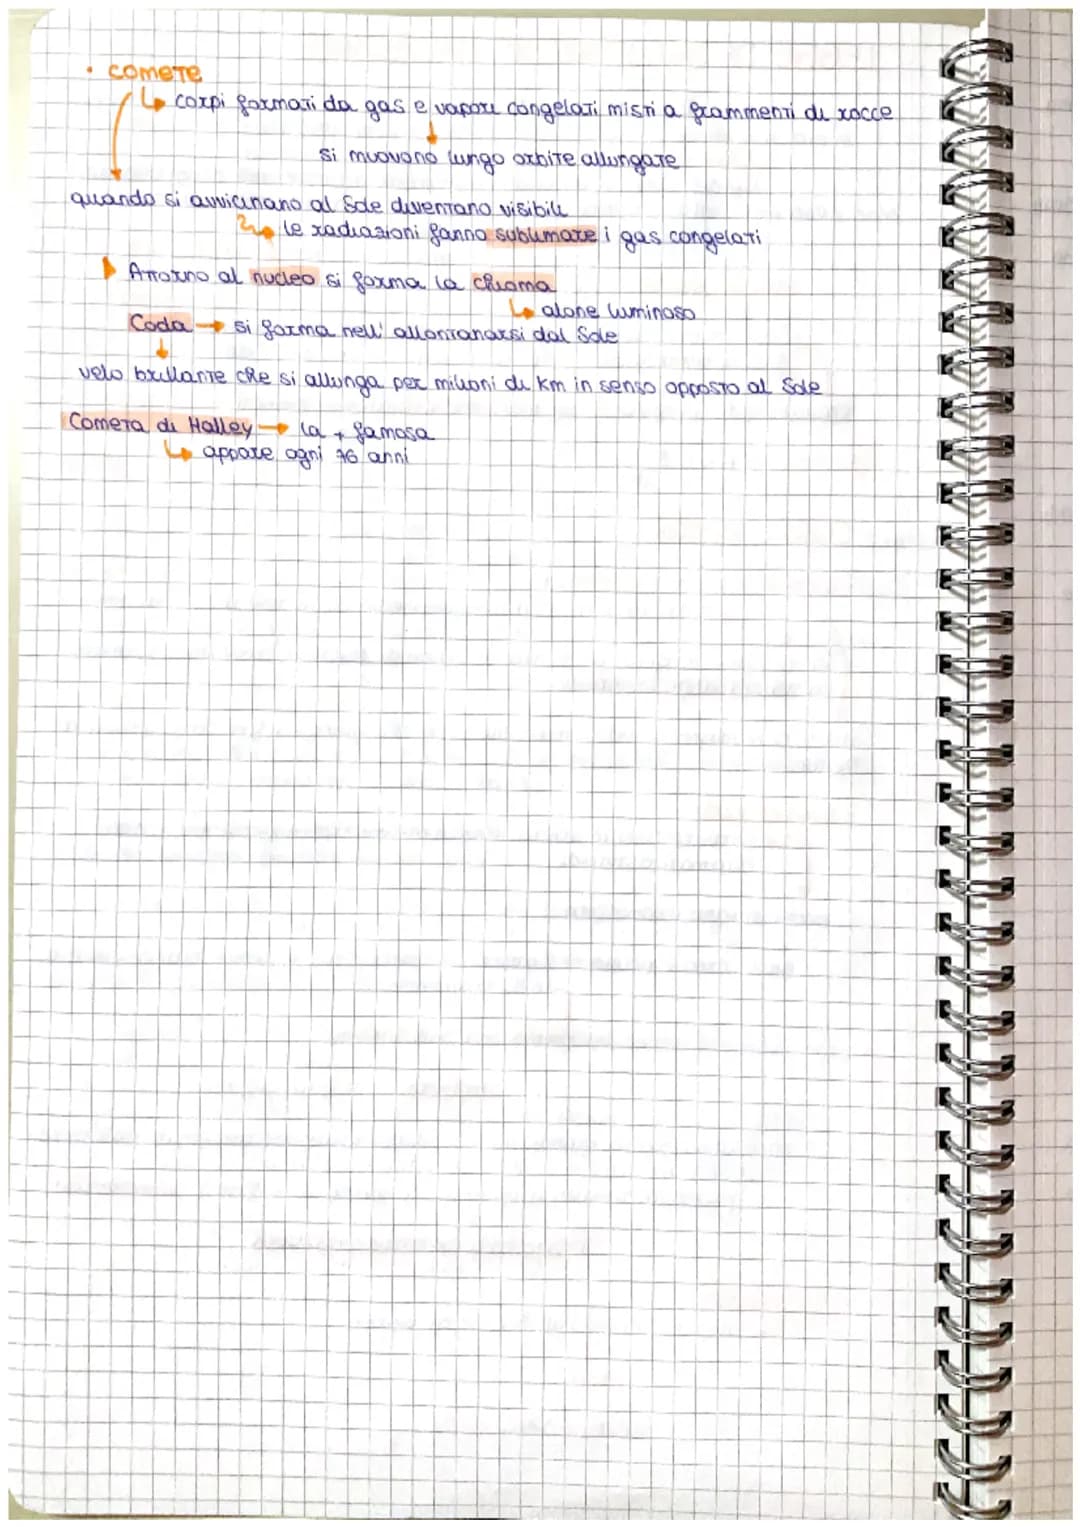 • COMETE
corpi formati da gas e vapore congelati misti a frammenti di rocce
si muovono lungo orbite allungate
quando si avvicinano al Sole diventano visibili
le radiazioni fanno sublimare i gas congelati
Attorno al nucleo si forma la chioma
alone luminoso
Coda → si forma nell' allontanarsi dal Sole
velo brillante che si allunga per milioni di km in senso opposto al Sole
Cometa di Halley → la + famosa
appare ogni 76 anni